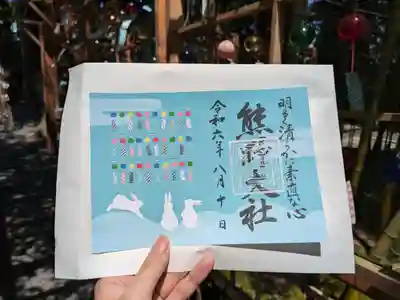 明く清らかな素直な心
熊野大社
令和六年八月十日